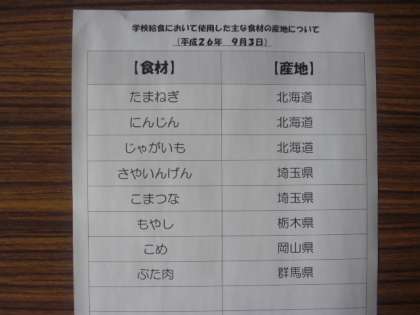 学校給食において使用した主な食材の産地について
(平成26年 9月3日)
【食材】 【産地】
たまねぎ 北海道
にんじん 北海道
じゃがいも 北海道
さやいんげん 埼玉県
こまつな 埼玉県
もやし 栃木県
こめ 岡山県
ぶた肉 群馬県